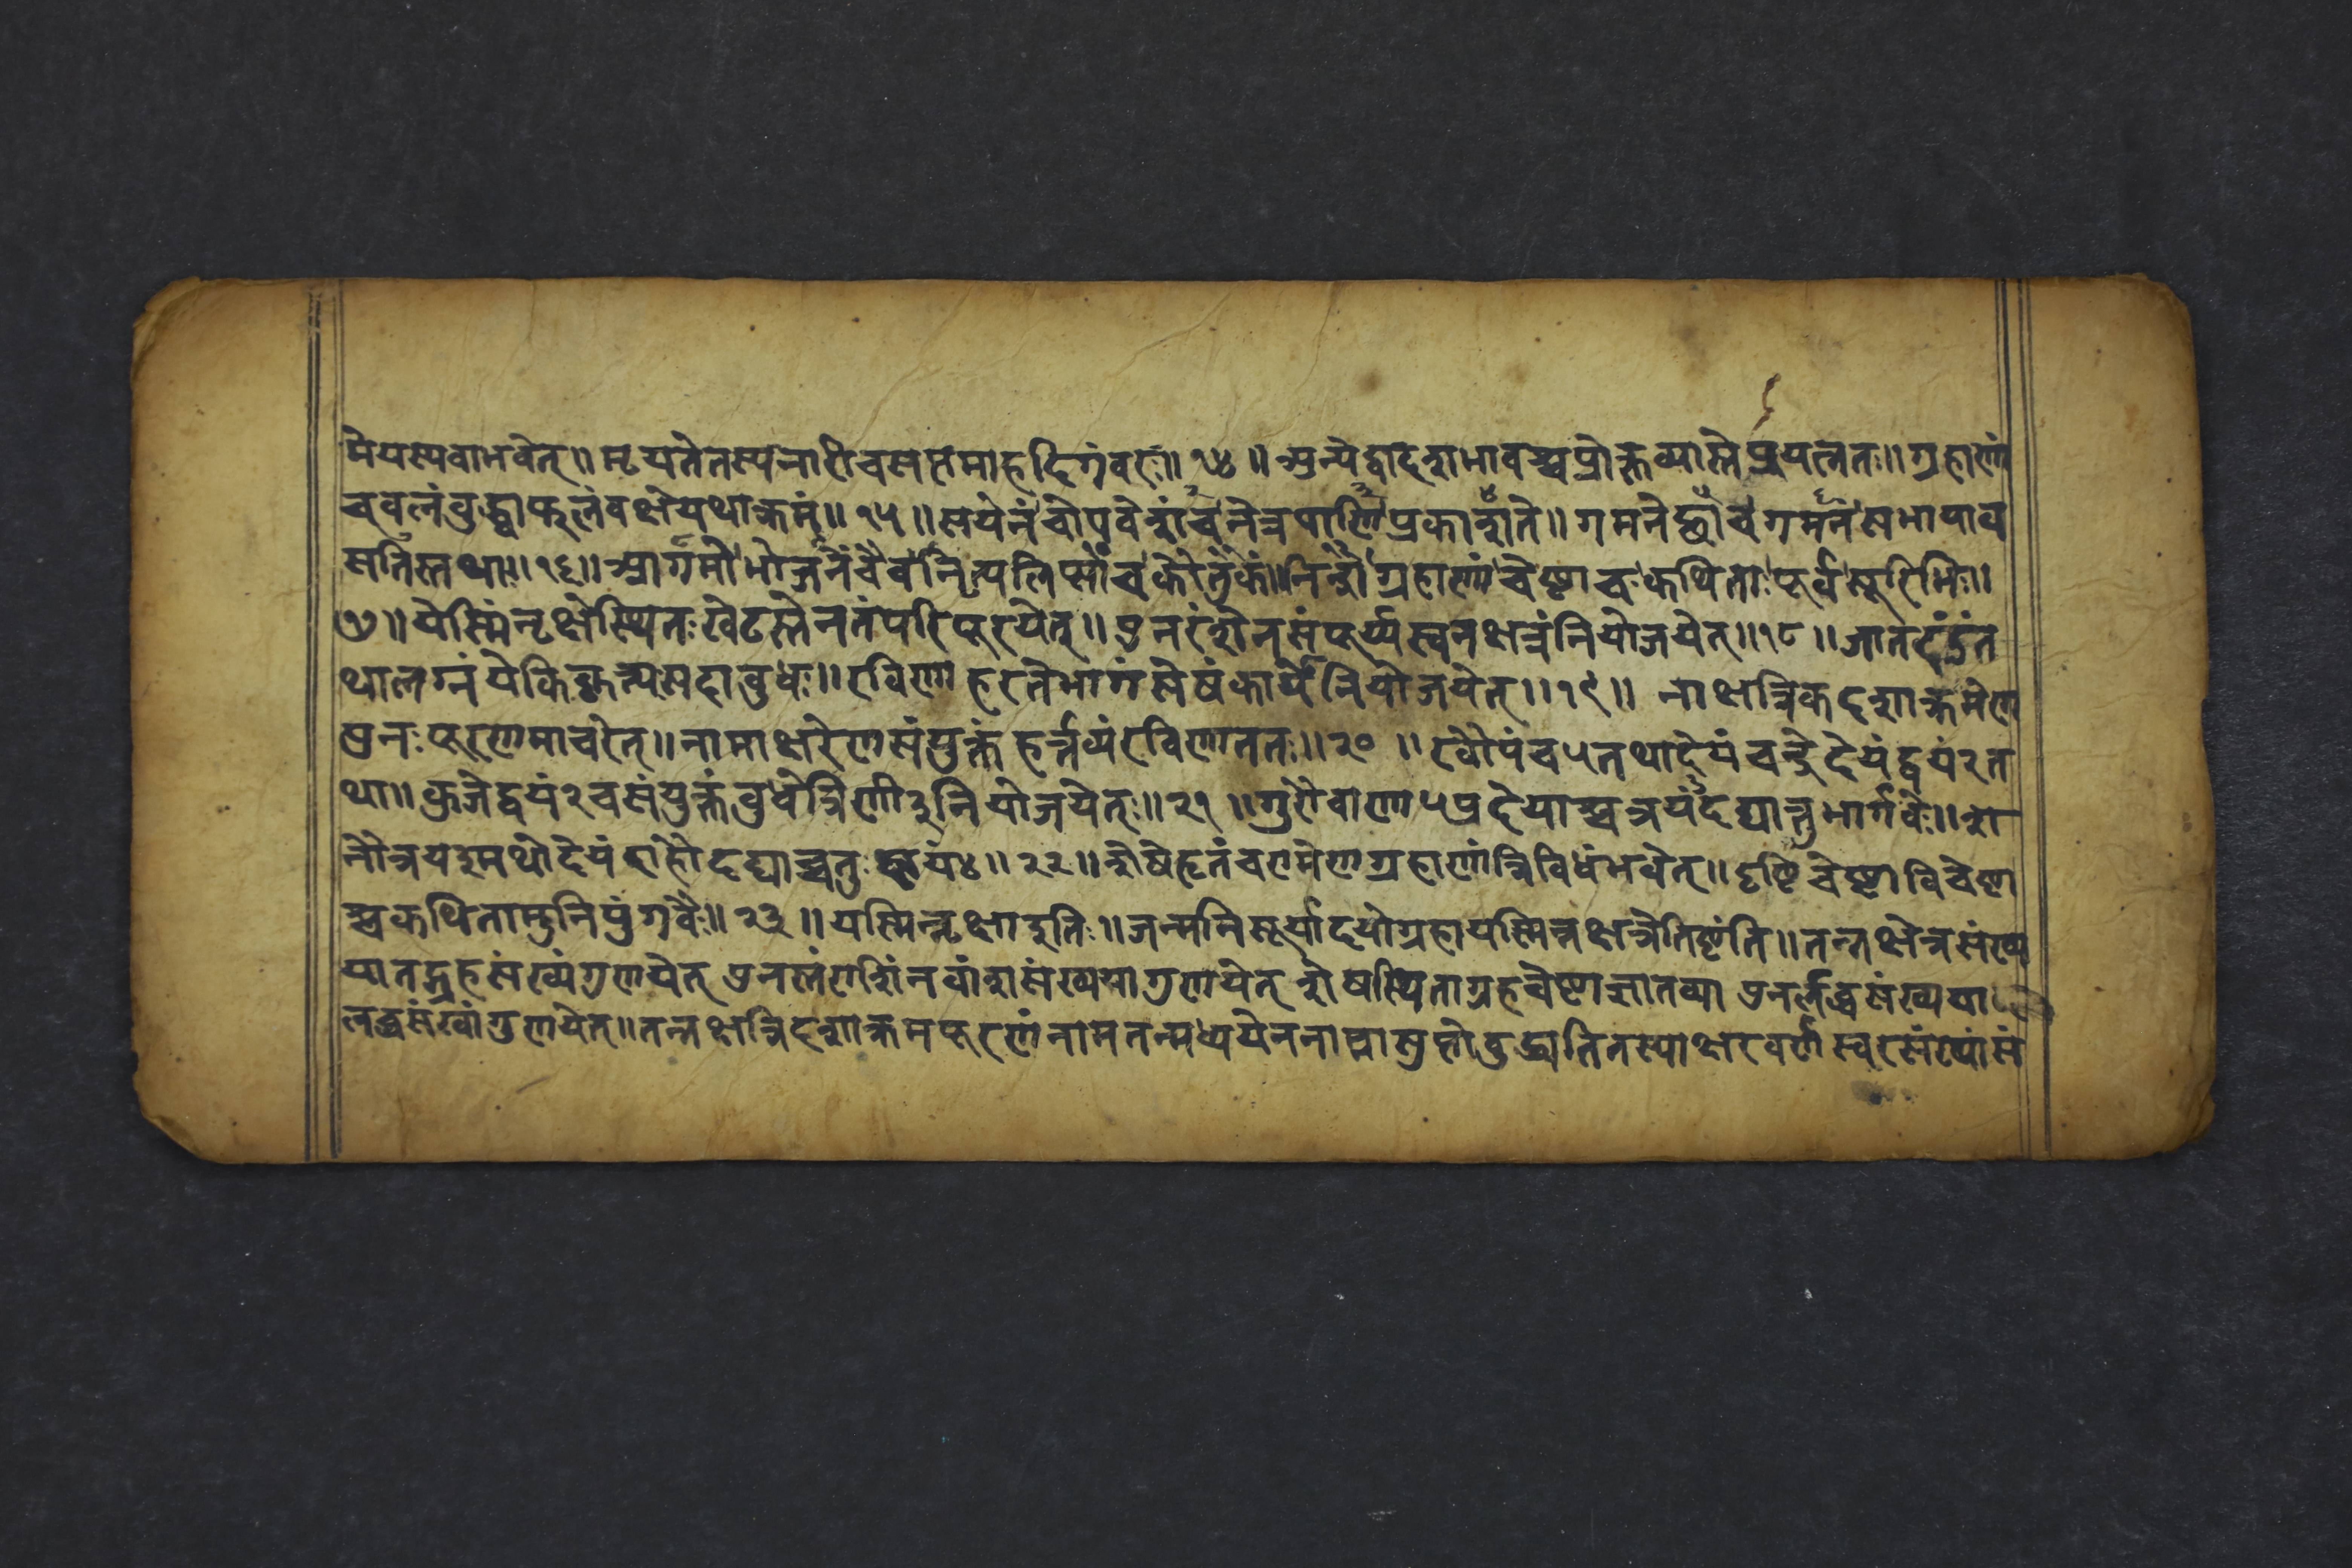 मेयस्यवाभवेत्॥मृयतेतस्यनारीचसतमाहदिगंवरः॥१४॥अन्येद्वादशभावस्चप्रोक्तव्यास्तेप्रयत्नतः॥ग्रहाणां
चवलंवुद्ध्वाफलंवक्षेयथाक्रमं॥१५॥सयेनंचोपवेशंचनेत्रपाणिप्रकाशते॥गमनेछाचगमनंसभायाव
सतिस्तथा॥१६॥आगमोभोजनंचैवनित्यलिप्साचकौतुकं॥निन्द्राग्रहाणांचेष्टाचकथिताःपूर्वसूरिभिः॥
७॥येस्मिंनृक्षेस्थितःखेटस्तेनतंपरिपूरयेत्॥पुनरंशेनसंपूर्य्यस्वनक्षत्रंनियोजयेत्॥१८॥जातदंडंत
थालग्नंयेकिकृत्यसदावुधः॥रविणाहरतेभागंसेषंकार्येनियोजयेत्॥१९॥नाक्षत्रिकदशाक्रमेण
पुनःपूरणमाचरेत्॥नामाक्षरेणसंयुक्तंहर्त्तव्यंरविणाततः॥२०॥रवौपंच५तथादेयंचन्द्रेदेयंद्वयं२त
था॥कुजेद्वयं२चसंयुक्तंवुधेत्रिणी३नियोजयेत्ः॥२१॥गुरौवाण५प्रदेयास्चत्रयं३दद्यात्तुभार्गवेः॥श
नौत्रय३मथोदेयंराहौदद्याच्चतुःष्टयं४॥२२॥शेषेहृतंचरामेणग्रहाणांत्रिविधंभवेत्॥दृष्टिचेष्टाविचेष्टा
स्चकथितामुनिपुंगवैः॥२३॥यस्मिन्नृक्षाइति॥जन्मनिसूर्यादयोग्रहायस्मिन्नक्षत्रेतिष्टंति॥तन्नक्षेत्रसंख्य
यातद्ग्रहसंख्यंगुणयेत्पुनस्तंराशिंनवांशसंख्ययागुणयेत्शेषस्थिताग्रहचेष्टाज्ञातव्यापुनर्लद्धसंख्यया
लद्धसंख्यांगुणयेत्॥तन्नक्षत्रिदशाक्रमपूरणंनामतन्मध्ययेननाम्नासुप्तोवुद्ध्यतितस्याक्षरवर्णस्वरसंख्यांसं